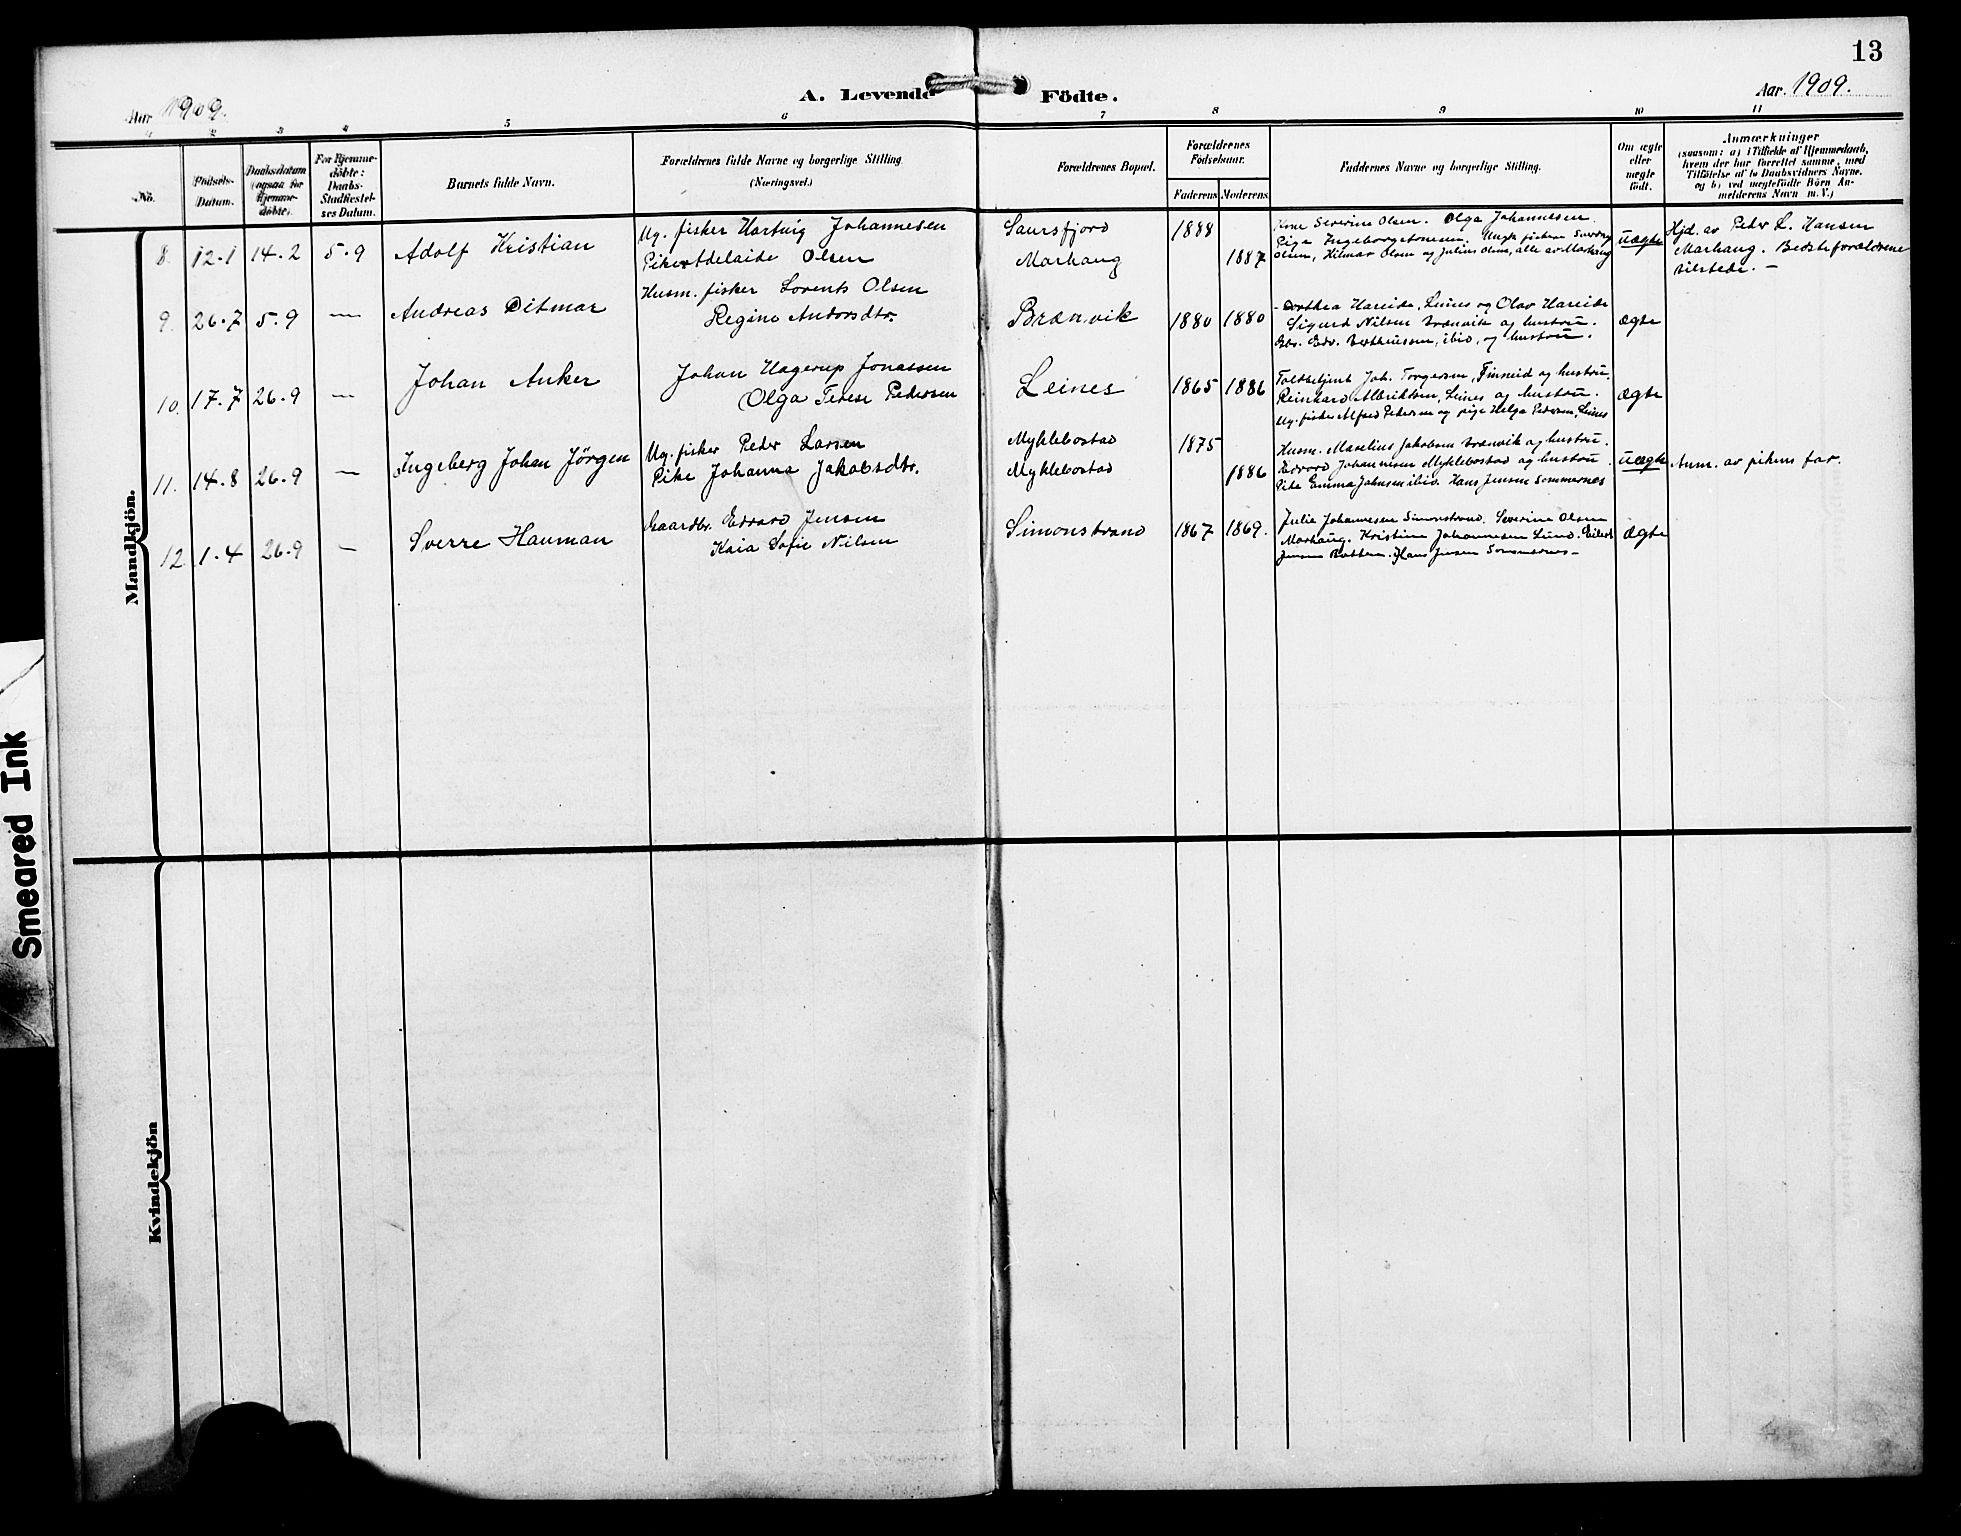 13
Aar 1909.
A. Levende Födte.
Aar. 1909.
1 2 3 4 5 6 7 8 9 10 11
No.
Födsels-
Datum.
Daabsdatum
(ogsaa for
Hjemme-
döbte).
For Hjemme-
döbte:
Daabs-
Stadfæstel-
ses Datum.
Barnets fulde Navn.
Forældrenes fulde Navne og borgerlige Stilling
(Næringsvei.)
Forældrenes Bopæl.
Forældrenes
Födselsaar.
Faderens Moderens
Faddernes Navne og borgerlige Stilling.
Om ægte
eller
uægte
födt.
Anmærkninger
(saasom: a) i Tilfælde af Hjemmedaab,
hvem der har forrettet samme, med
Tilföielse af to Daabsvidners Navne.
og b) ved uægtefödte Börn An-
melderens Navn m. V.)
Mandkjön.
8. 12.1 14.2 5.9 Adolf Kristian
Ug. fisker Hartvig Johannesen
Pike Adelaide Olsen
Saursfjord
Marhaug
1888
1887
Kone Severine Olsen. Olga Johannesen.
Pige Ingeborg
Olsen, Hilmar Olsen og Julius Olsen, alle av Marhaug
Uægte
Hjd. av Peder L. Hansen
Marhaug. Bedsteforældrene
tilstede. –
9. 26.7 5.9 — Andreas Ditmar
Husm. fisker Lorents Olsen
Regine Andorsdtr.
Brænvik
1880 1880
Dorthea Hareide, Leines og Olav Hareide
Sigurd Nilsen Brænvik og hustru.
Gbr. Edv. Bertheussen, ibid, og hustru.
Ægte
10. 17.7 26.9 — Johan Anker
Johan Hagerup Jonassen
Olga Terese Pedersen
Leines
1865 1886
Toldbetjent Joh. Torgersen, Finneid og hustru.
Reinhard Albriktsen, Leines og hustru.
Ug. fisker Alfred Pedersen og pige Helga Pedersen, Leines
Ægte
11. 14.8 26.9 — Ingeberg Johan Jörgen
Ug. fisker Peder Larsen
Pike Johanna Jakobsdtr.
Myklebostad
Myklebostad
1875
1886
Husm. Marelius Jakobsen Brænvik og hustru.
Edvard Johannesen Myklebostad og hustru.
Pike Emma Johnsen ibid. Hans Jensen Sommernes
Uægte
Anm. av pikens far.
12 1.4 26.9 — Sverre Hauman
Gaardbr. Edvard Jensen
Kaia Sofie Nilsen
Simonstrand
1867 1869.
Julie Johannesen Simonstrand. Severine Olsen
Marhaug. Kristine Johannesen Lund. Eilert
Jensen Botten. Hans Jensen Sommernes –
Ægte
Kvindekjön
Smeared Ink